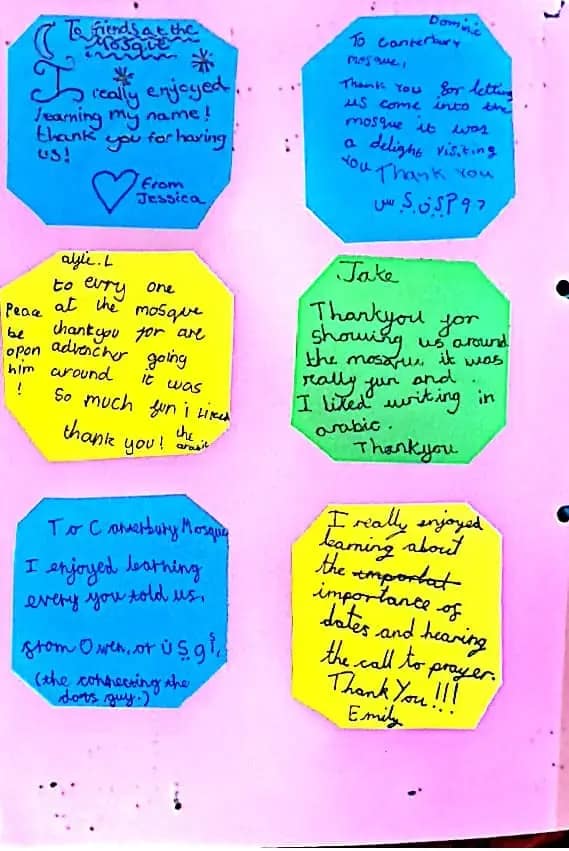 To friends at the
Mosque
I really enjoyed
learning my name!
thank you for having
us!
From
Jessica
Dominic
To Canterbury
mosque,
Thank you for letting
us come into the
mosque it was
a delight visiting
you Thank You
to evry one
at the mosque
thankyou for are
advencher going
around it was
So much fun i Liked
the arabic
thank you!
Peace
be
opon
him
!
Jake
Thankyou for
showing us around
the mosque, it was
really fun and
I liked writing in
arabic.
Thankyou
To Canterbury Mosque
I enjoyed learning
every you told us,
from Owen, or
(the connecting the
dots guy.)
I really enjoyed
learning about
the importat
importance of
dates and hearing
the call to prayer.
Thank You!!!
Emily